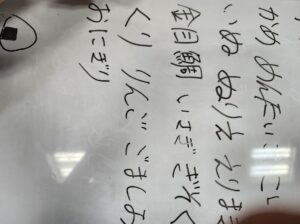 かめ めんたいこ い
いぬ ぬりえ えりま
金目鯛
くり りんご ごましお
おにぎり